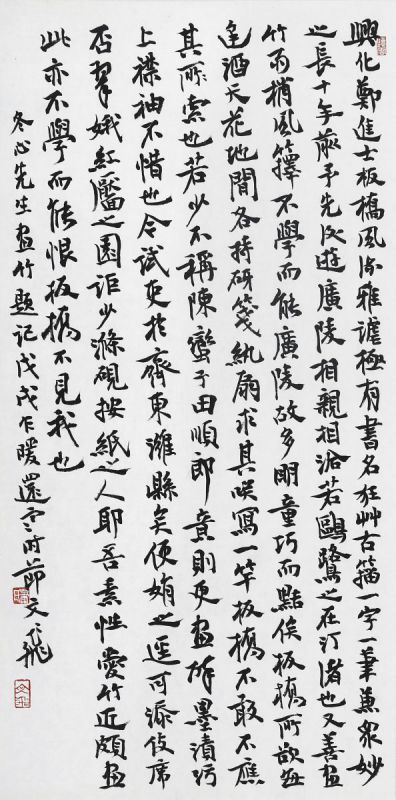 興化鄭進士板橋風流雅謔極有書名狂艸古籀一字一筆兼眾妙
之長十年前予先後遊廣陵相親相洽若鷗鷺之在汀渚也又善畫
竹雨梢風籜不學而能廣陵故多明童巧而黠俟板橋所欲每
逢酒天花地間各持砑箋紈扇求其咲寫一竿板橋不敢不應
其所索也若少不稱陳蠻子田順郎意則更畫醉墨漬污
上襟袖不惜也今試吏於齊東濰縣矣便娟之逕可添侍席
否翠娥紅靨之園詎少滌硯按紙之人耶吾素性愛竹近頗畫
此亦不學而能恨板橋不見我也
冬心先生畫竹題記戊戌乍暖還寒時節文飛